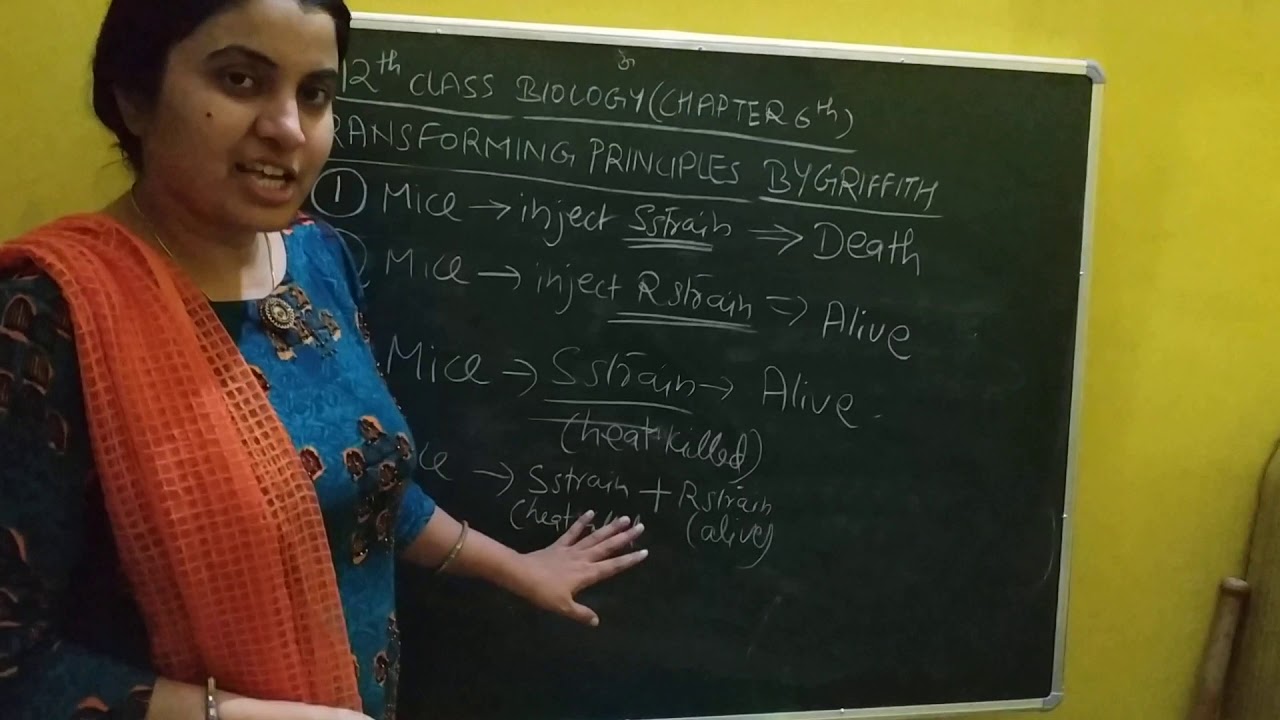 ॐ
12th CLASS BIOLOGY (CHAPTER 6th)
RANSFORMING PRINCIPLES BY GRIFFITH
① Mice → inject S strain ⇒ Death
Mice → inject R strain ⇒ Alive
Mice → S strain → Alive.
(heat killed)
→ S strain + R strain
(heat (alive)